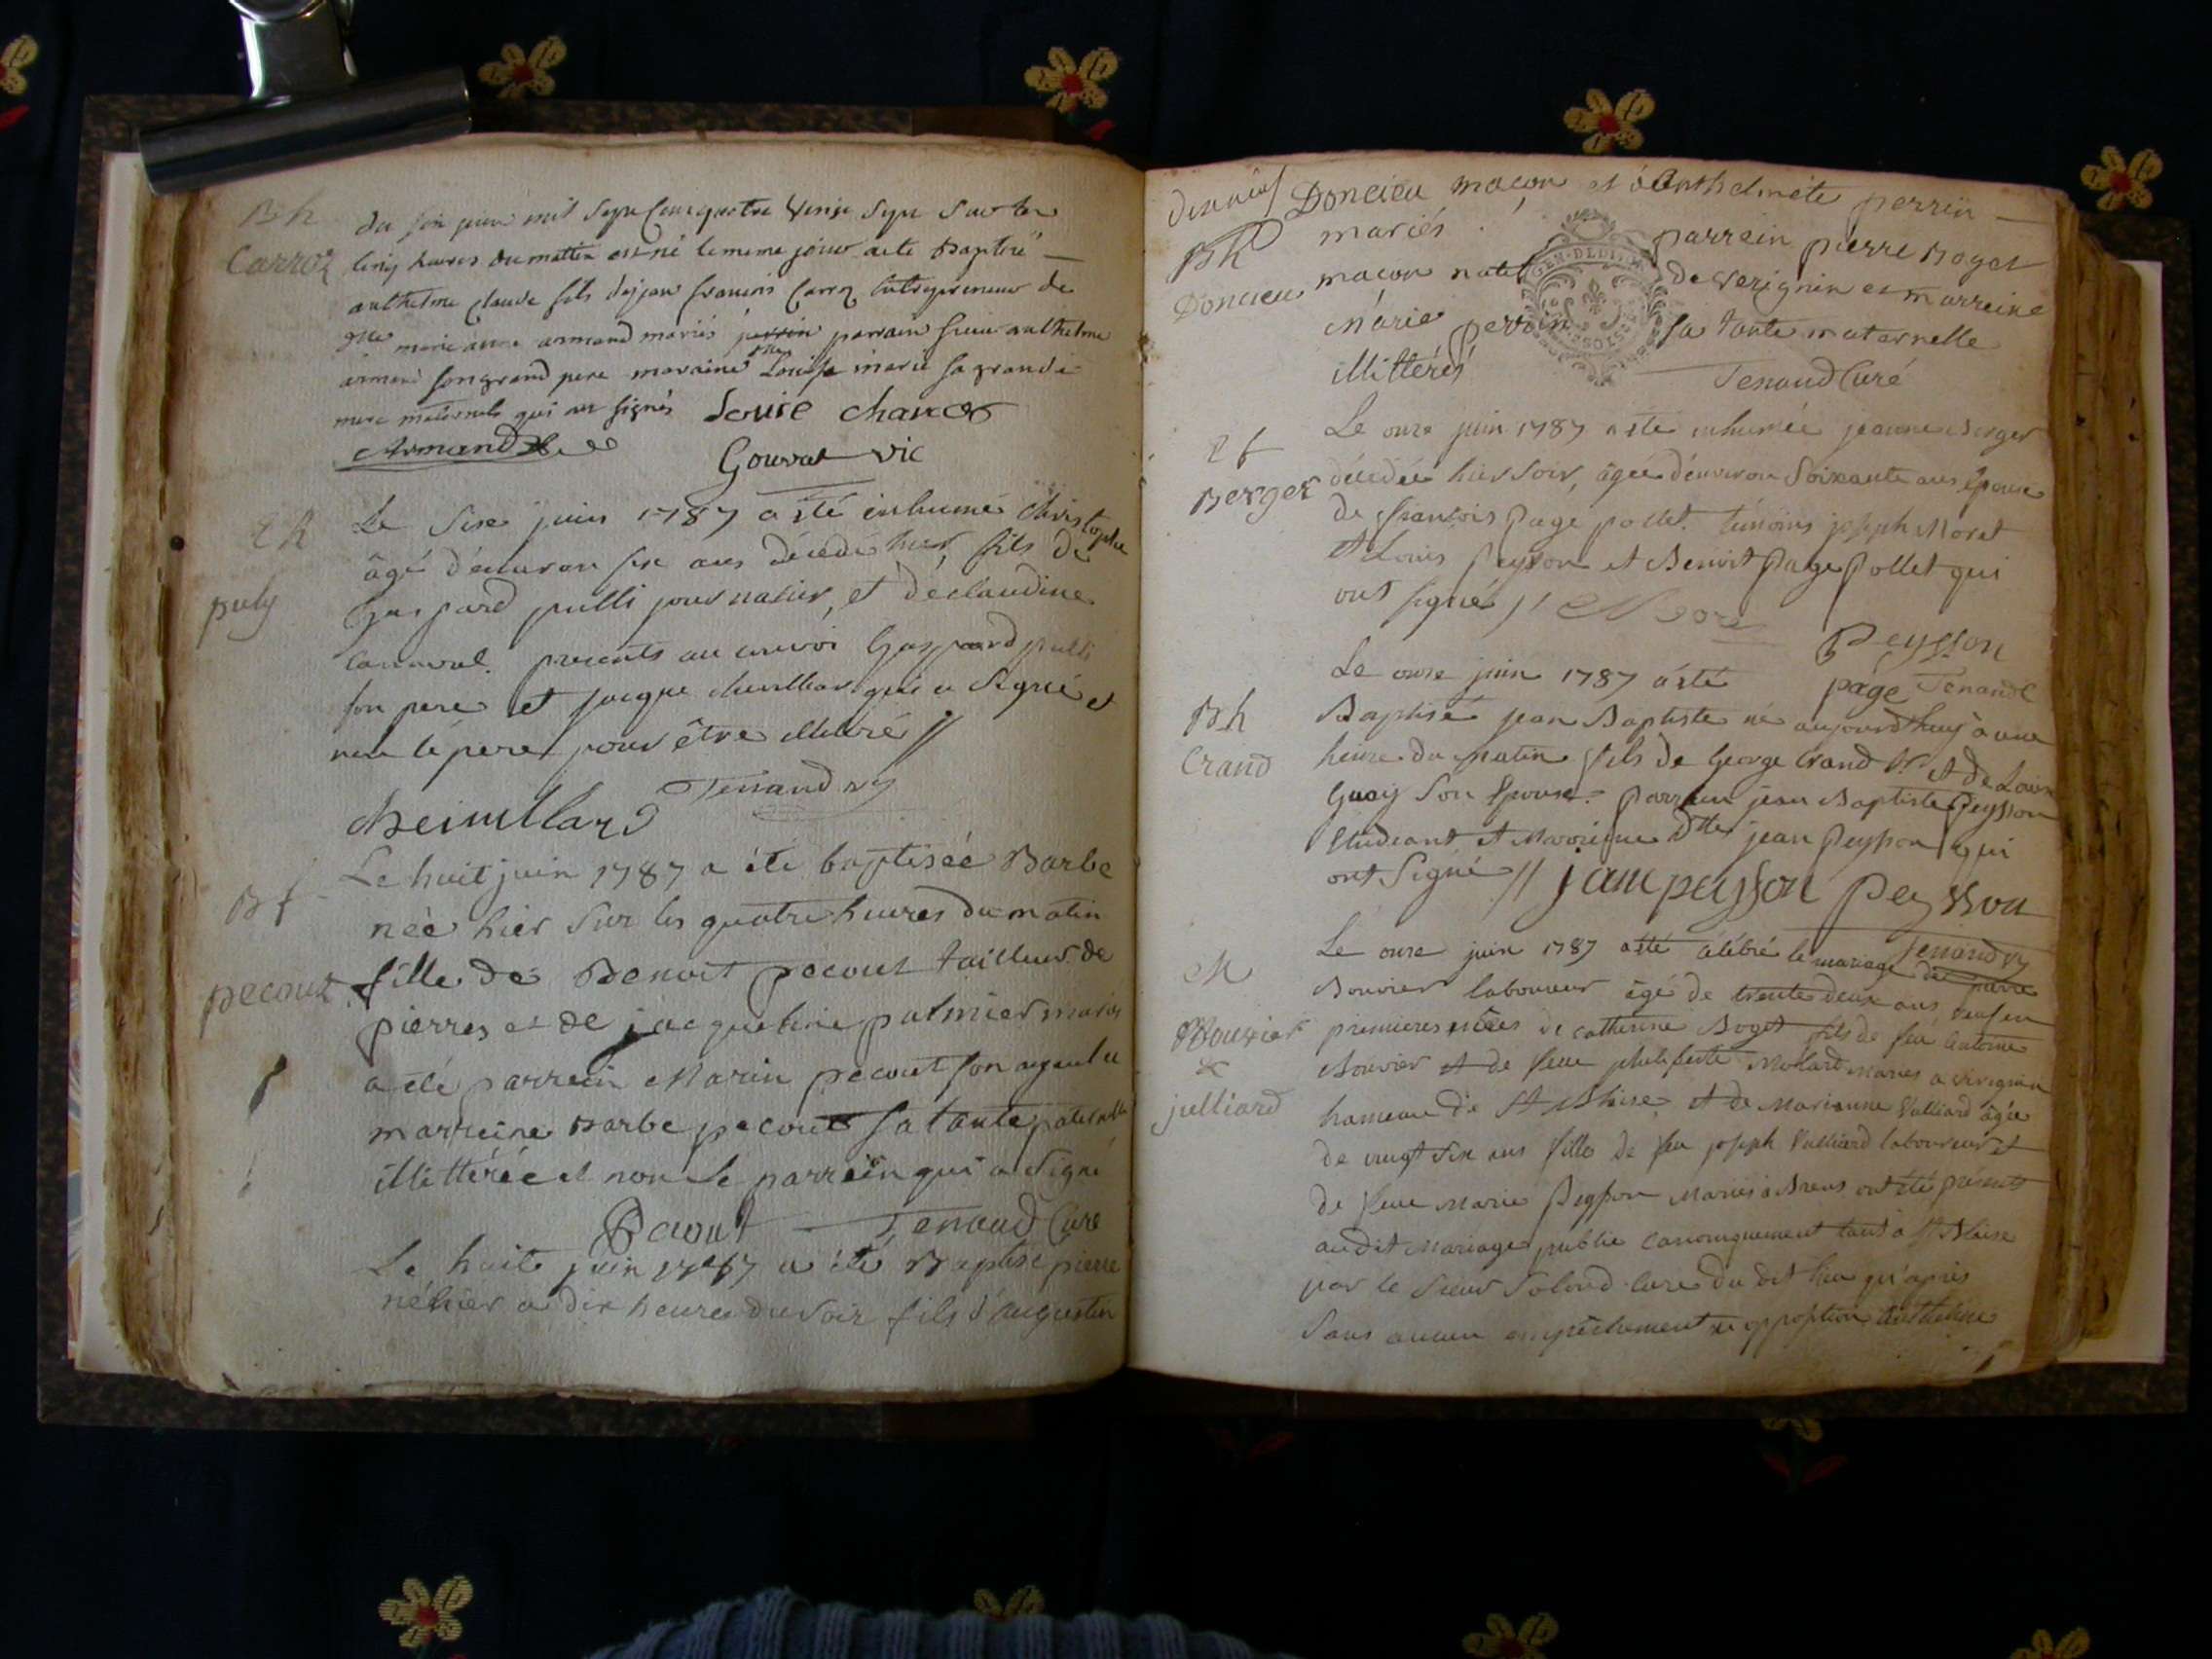 Bh
Carroz
du six juin mil sept cent quatre vingt sept sur les
cinq heures du mattin est né le meme jour a ete Baptisé
anthelme claude fils de jean francois Carroz entrepreneur de
marie anne armand mariés parrain sieur anthelme
armand son grand pere maraine Louise marie sa grande
mere maternelle qui ont signés Louise chance
Armand
Gouvat vic
Eh
puly
Le six juin 1787 a été inhumé christophe
âgé d'environ six ans décédé hier, fils de
Gaspard pulli journalier, et de claudine
presents au convoi Gaspard pulli
son pere et jacque qui a signé et
non le pere pour être illitéré //
Tenand
Bf
pecout
Le huit juin 1787 a été baptiséé Barbe
néé hier sur les quatre heures du matin
fille de Benoit pecout tailleur de
pierres et de jacqueline palmier mariés
a été parrein Marin pecout son ayeul et
marreine Barbe pecout sa tante paternelle
illittéréé et non le parrein qui a signé
Pecout Tenand Curé
Le huit juin 1787 a été Baptisé pierre
né hier a dix heures du soir fils d'augustin
Bh
Doncieu
Doncieu maçon et d'Anthelmete perrin
mariés parrein pierre Boget
maçon natif de Verignin et marreine
Marie perrin sa tante maternelle
illittérés Tenand Curé
Ef
Berger
Le onze juin 1787 a été inhumée jeanne Berger
décédée hier soir, âgée d'environ soixante ans épouse
de francois Page pollet. témoins joseph Moret
et Louis Peysson et Benoit Page Pollet qui
ont signé //
Peysson
page Tenand C
Bh
Crand
Le onze juin 1787 a été
Baptisé jean Baptiste né aujourd'huy à une
heure du matin fils de George Crand et de Louise
Guay son épouse. Parrein jean Baptiste Peysson
Etudiant et Marreine Dlle jean Peysson qui
ont signé // jane peysson Peysson
Tenand
M
Bouvier
&
julliard
Le onze juin 1787 a été célébré le mariage de pierre
Bouvier laboureur âgé de trente deux ans veuf en
premieres nôces de catherine Boget fils de feu antoine
Bouvier et de feue philiberte Molard mariés a virignin
hameau de St Blaise et de Marianne Julliard âgée
de vingt six ans fille de feu joseph Julliard laboureur et
de feue Marie Peysson Mariés à Brens ont été présents
audit Mariage publié canoniquement tant à St Blaise
par le Sieur curé du dit lieu qu'apres
sans aucun empêchement ni opposition